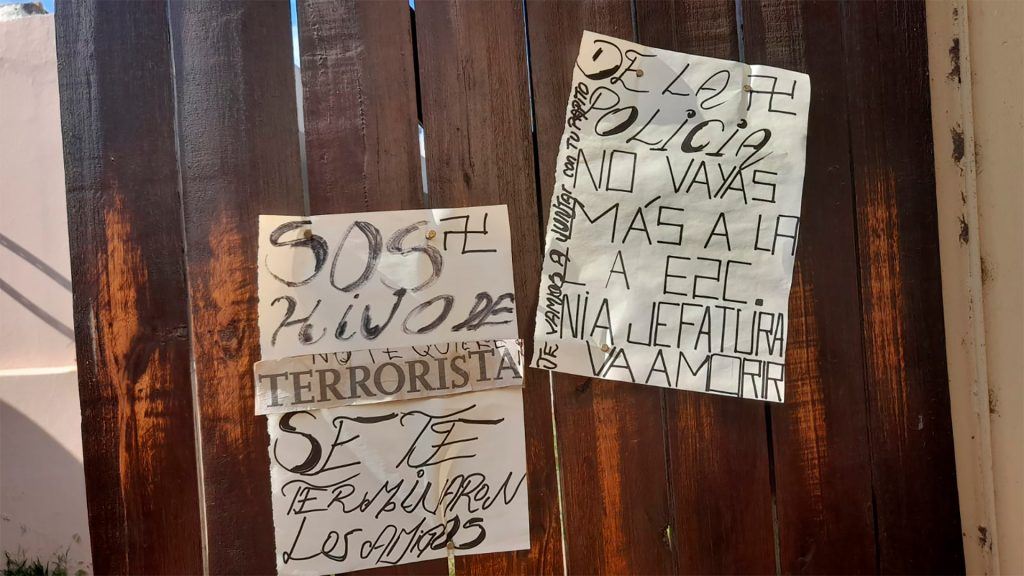 SOS
HIJO DE
NO TE QUIERE
TERRORISTA
SE TE
TERMINARON
LOS AMIGOS
DE LA
POLICIA
NO VAYAS
MÁS A LA
E2C.
NI A JEFATURA
VA A MORIR
TE VAMOS A JUNTAR CON TU PADRE